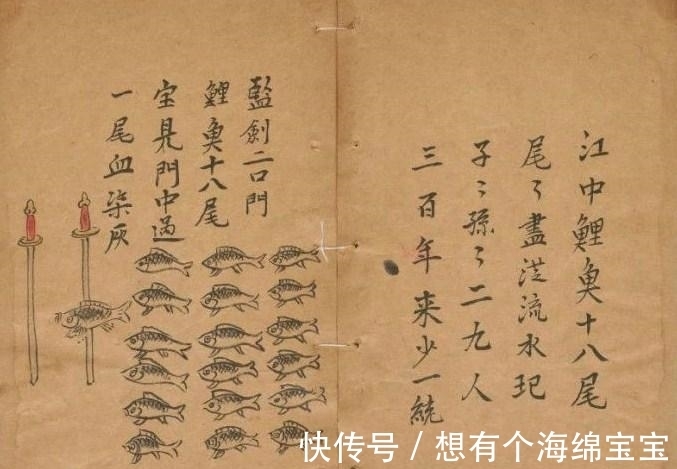 江中鯉魚十八尾
尾々盡流水
子々孫々二九人
三百年来少一統
二口門
鯉魚十八尾
宝見門中過
一尾血柒灰
快传号 / 想有个海绵宝宝